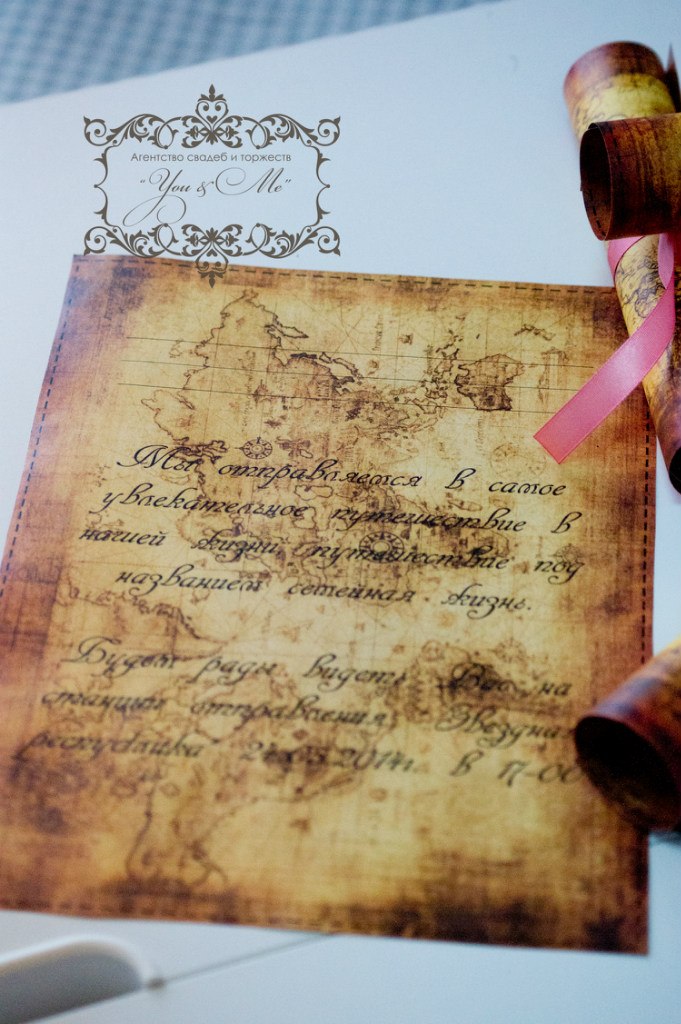 Агентство свадеб и торжеств
"You & Me"
Мы отправляемся в самое
увлекательное путешествие в
нашей жизни, путешествие под
названием семейная жизнь.
Будем рады видеть Вас на
станции отправления Звездная
республика 2014г. в 17-00